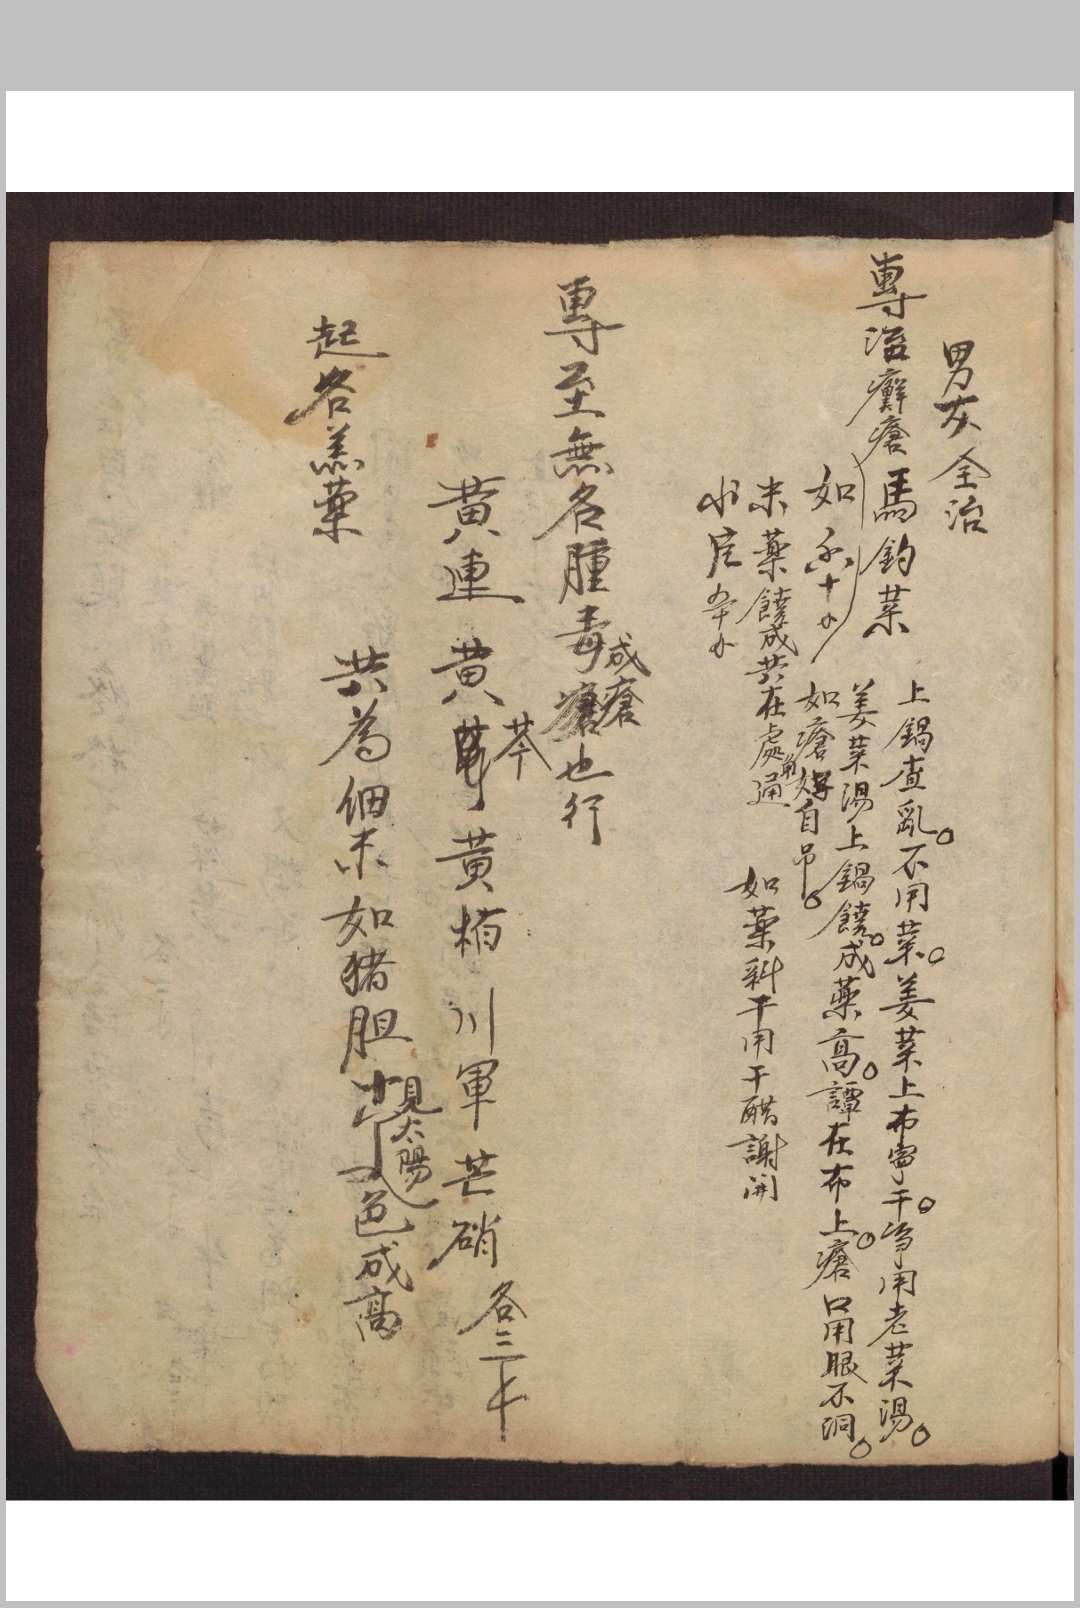 男女全治
專治癬瘡馬釣菜
上鍋查亂。不用菜。姜菜上布寧干。净用老菜湯。
姜菜湯上鍋饒。成藥高。譚在布上。瘡口用眼不洞。
如 十
如瘡 自吊。
末藥饒成共在處通
如藥料干用干醋謝開
專至無名腫毒瘡也行
成瘡
黃連 黃芩 黃栢 川軍 芒硝 各三
起名羔藥
共為細末如猪胆 色成高
見太陽